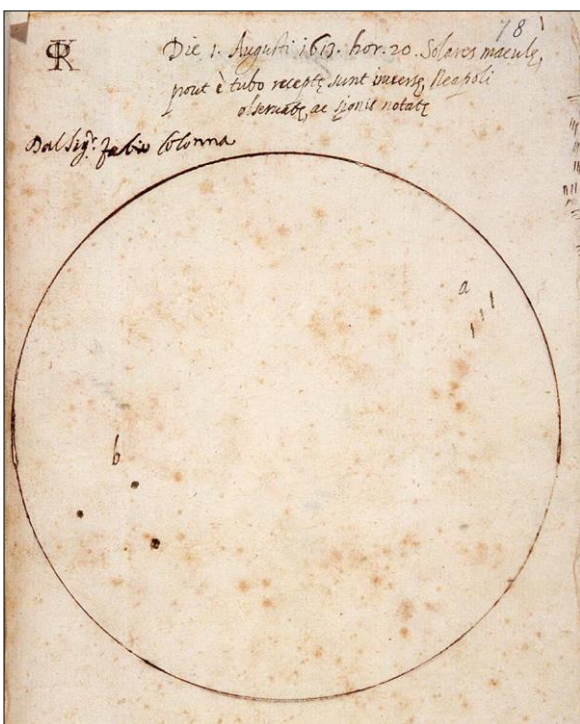 78
Die 1. Augusti 1613. hor. 20. Solares maculę,
prout è tubo receptę sunt inversę, Neapoli
observatę, ac signis notatę
Dal Sigr. fabio Colonna
a
b